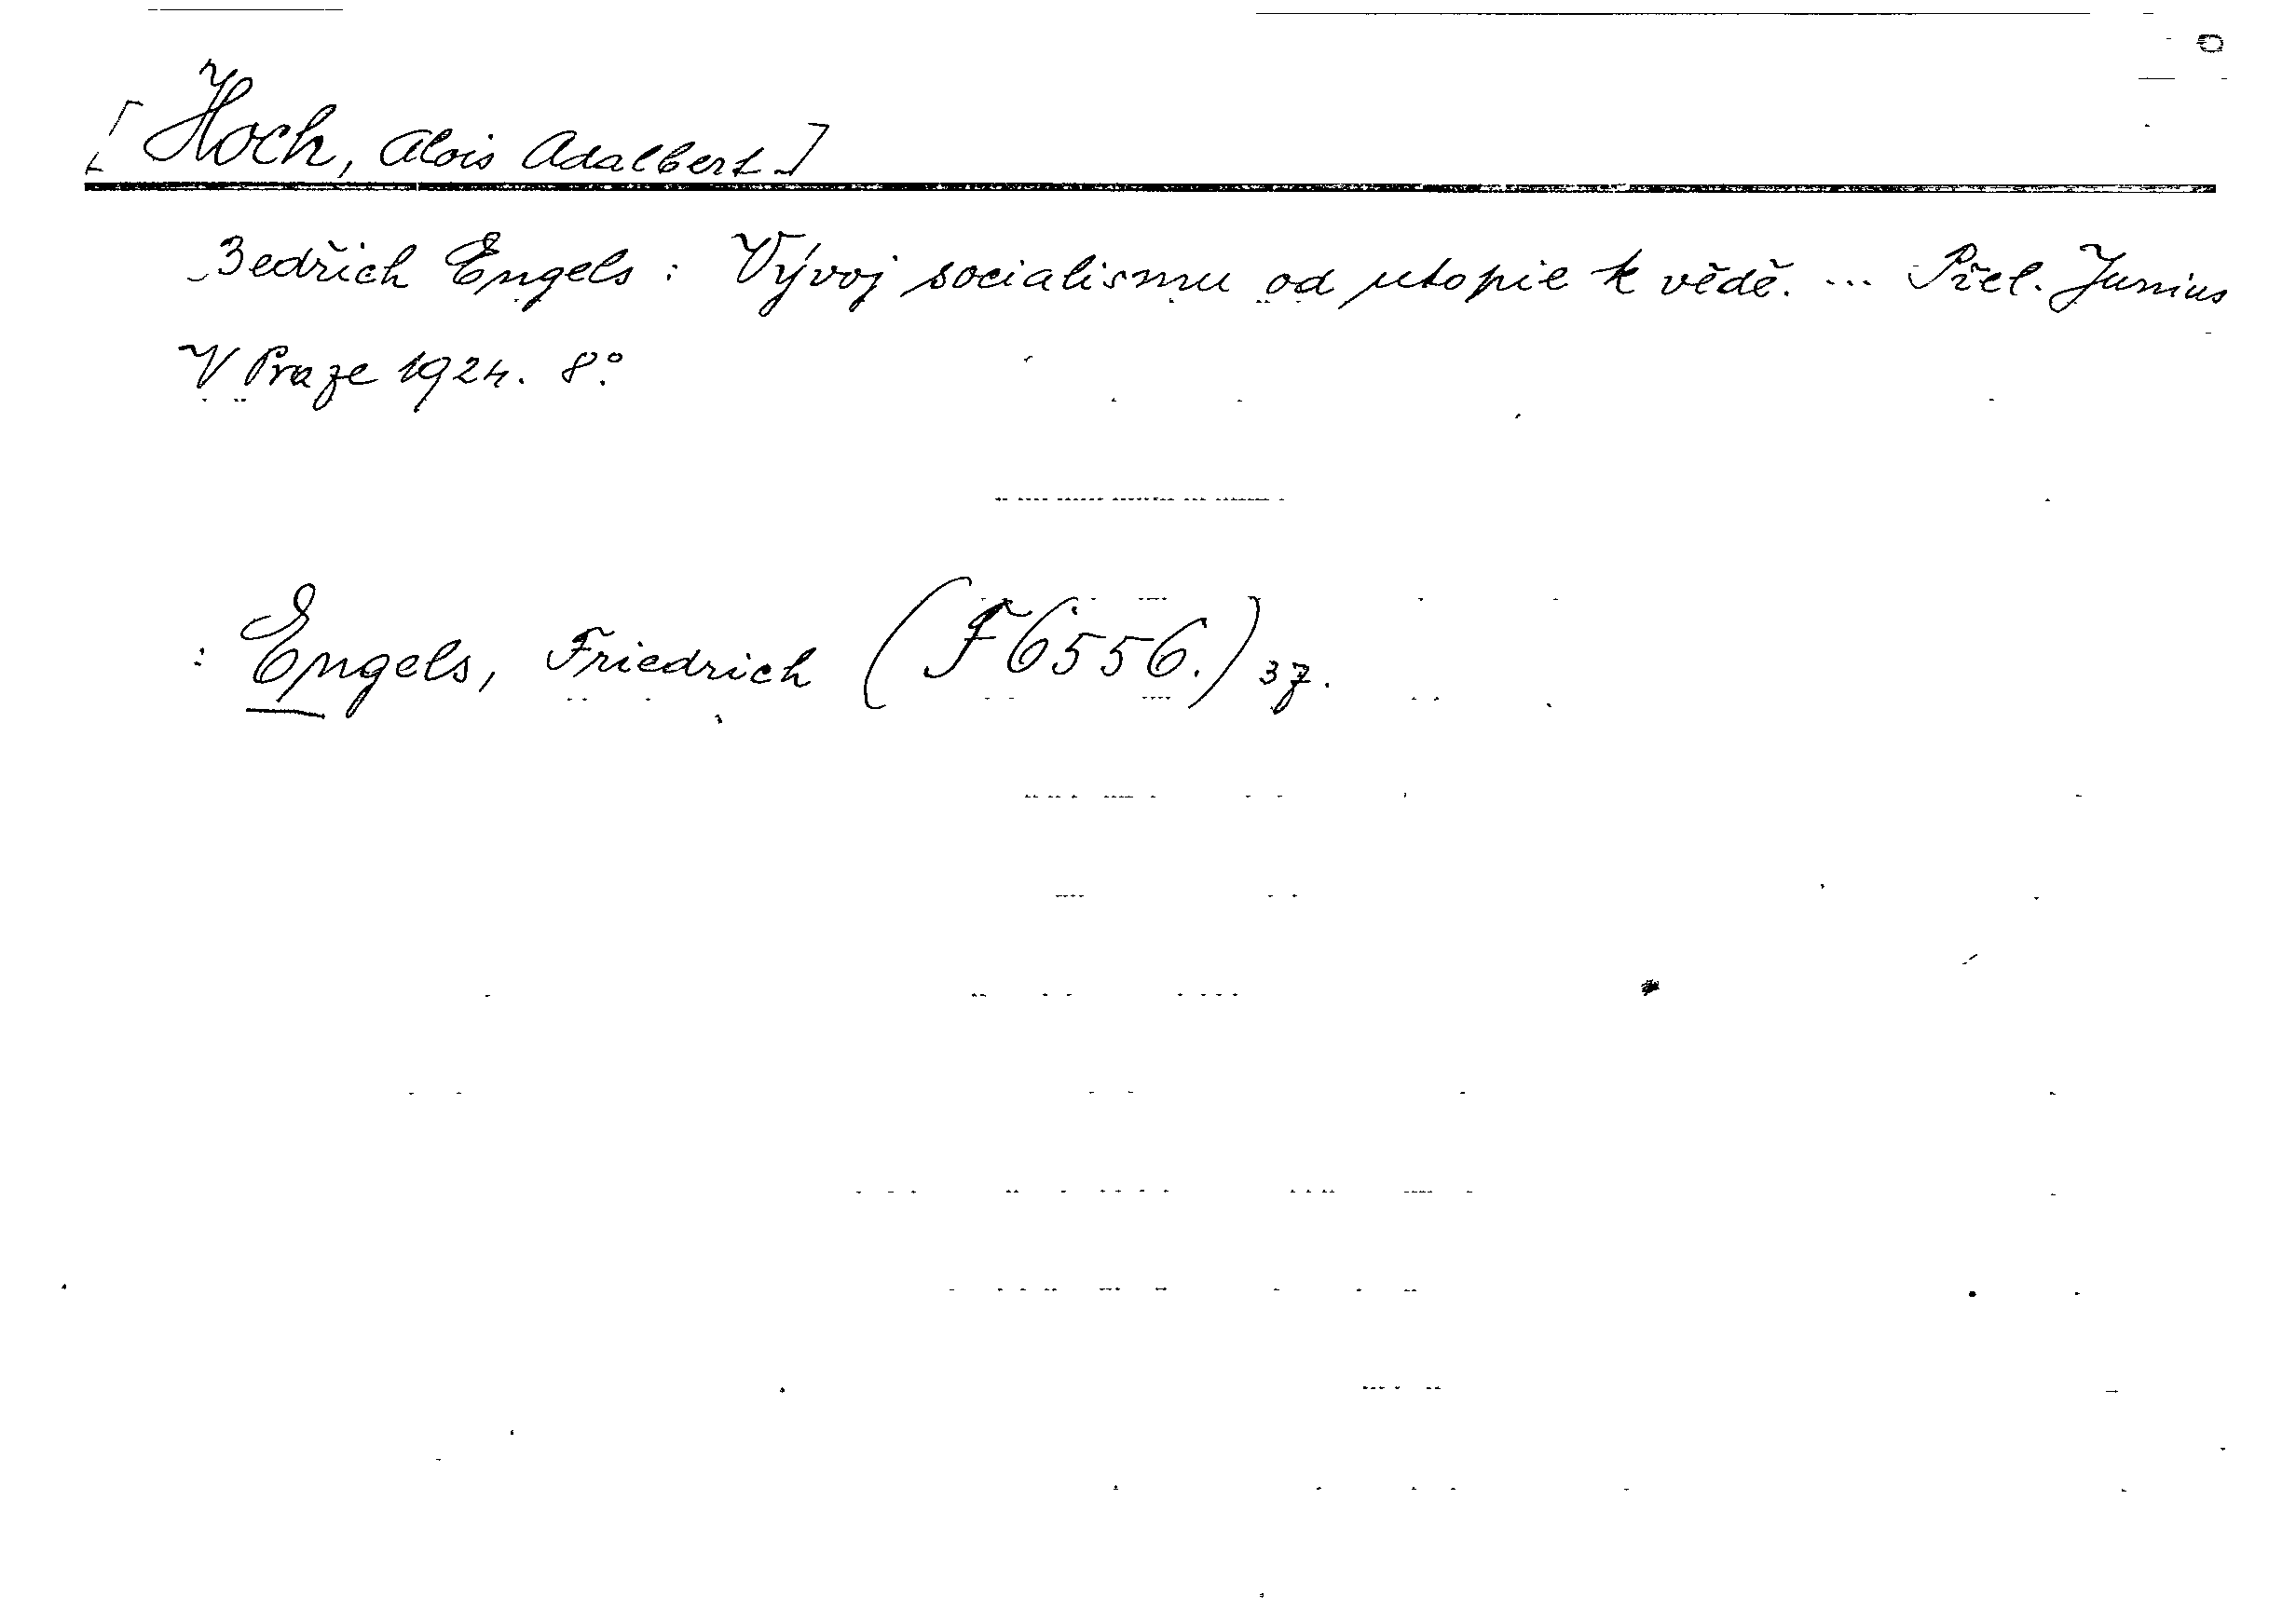 [Hoch, Alois Adalbert]
Bedřich Engels : Vývoj socialismu od utopie k vědě. ... Přel. Junius
V Praze 1924. 8°.
: Engels, Friedrich (F 6556.) 37.